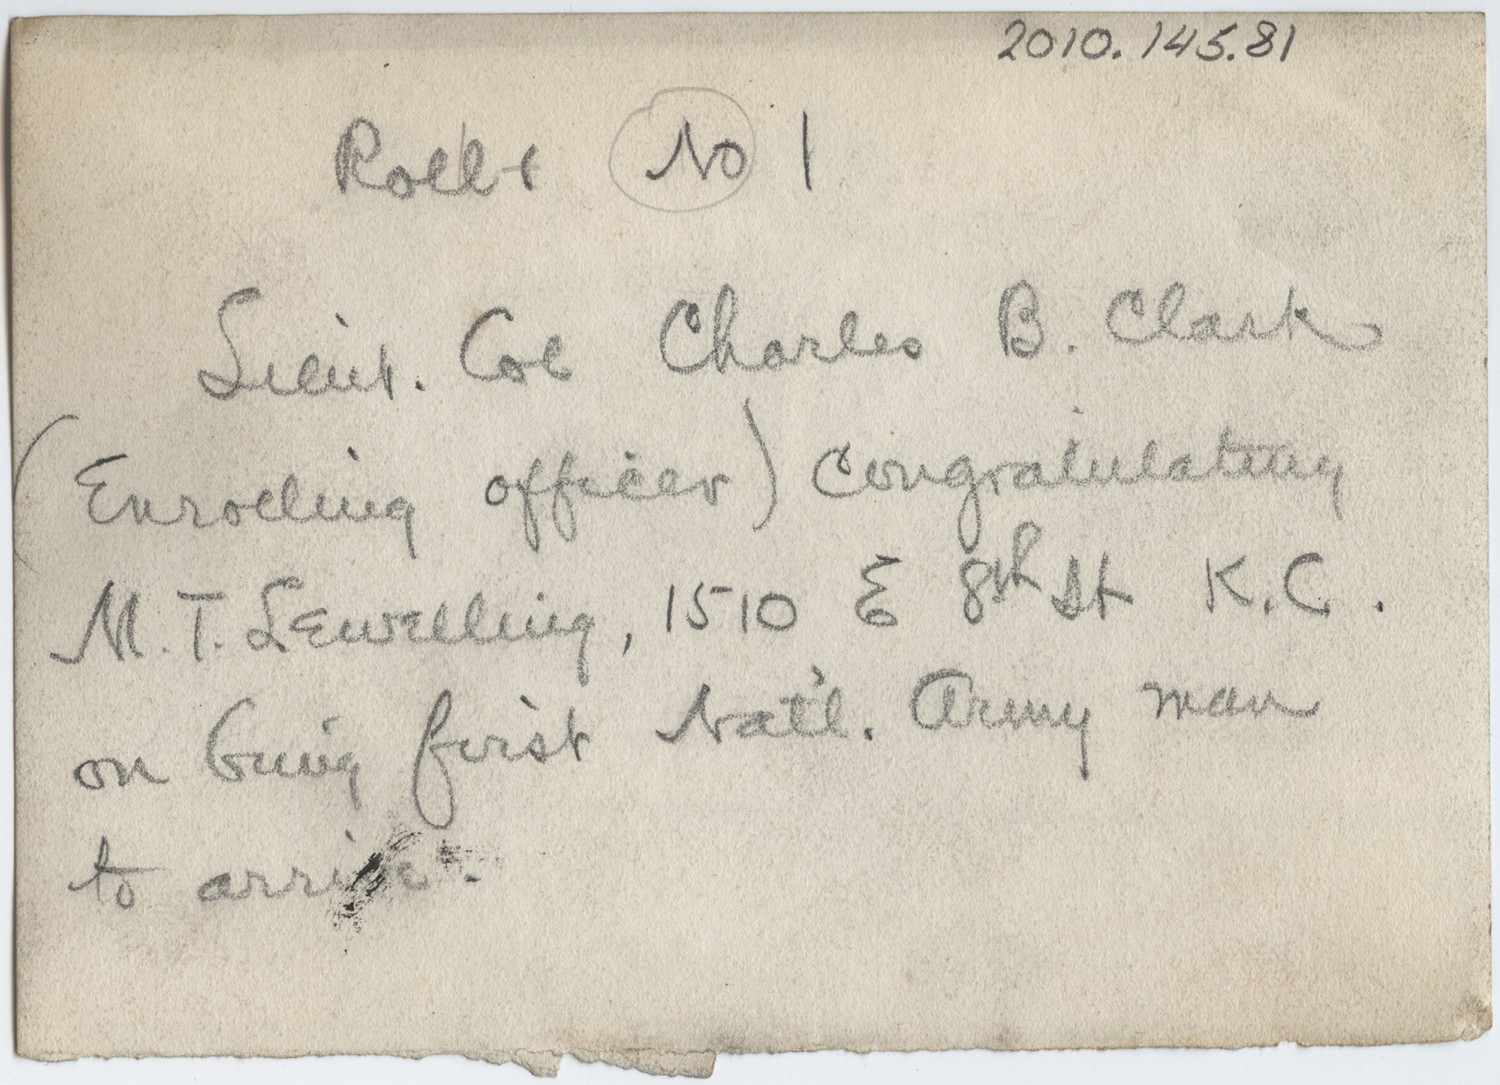 2010.145.81
No 1
Lieut. Col Charles B. Clark
(Enrolling officer) congratulating
M.T. Lewelling, 1510 E 8th St K.C.
on being first Nat'l. Army man
to arrive.